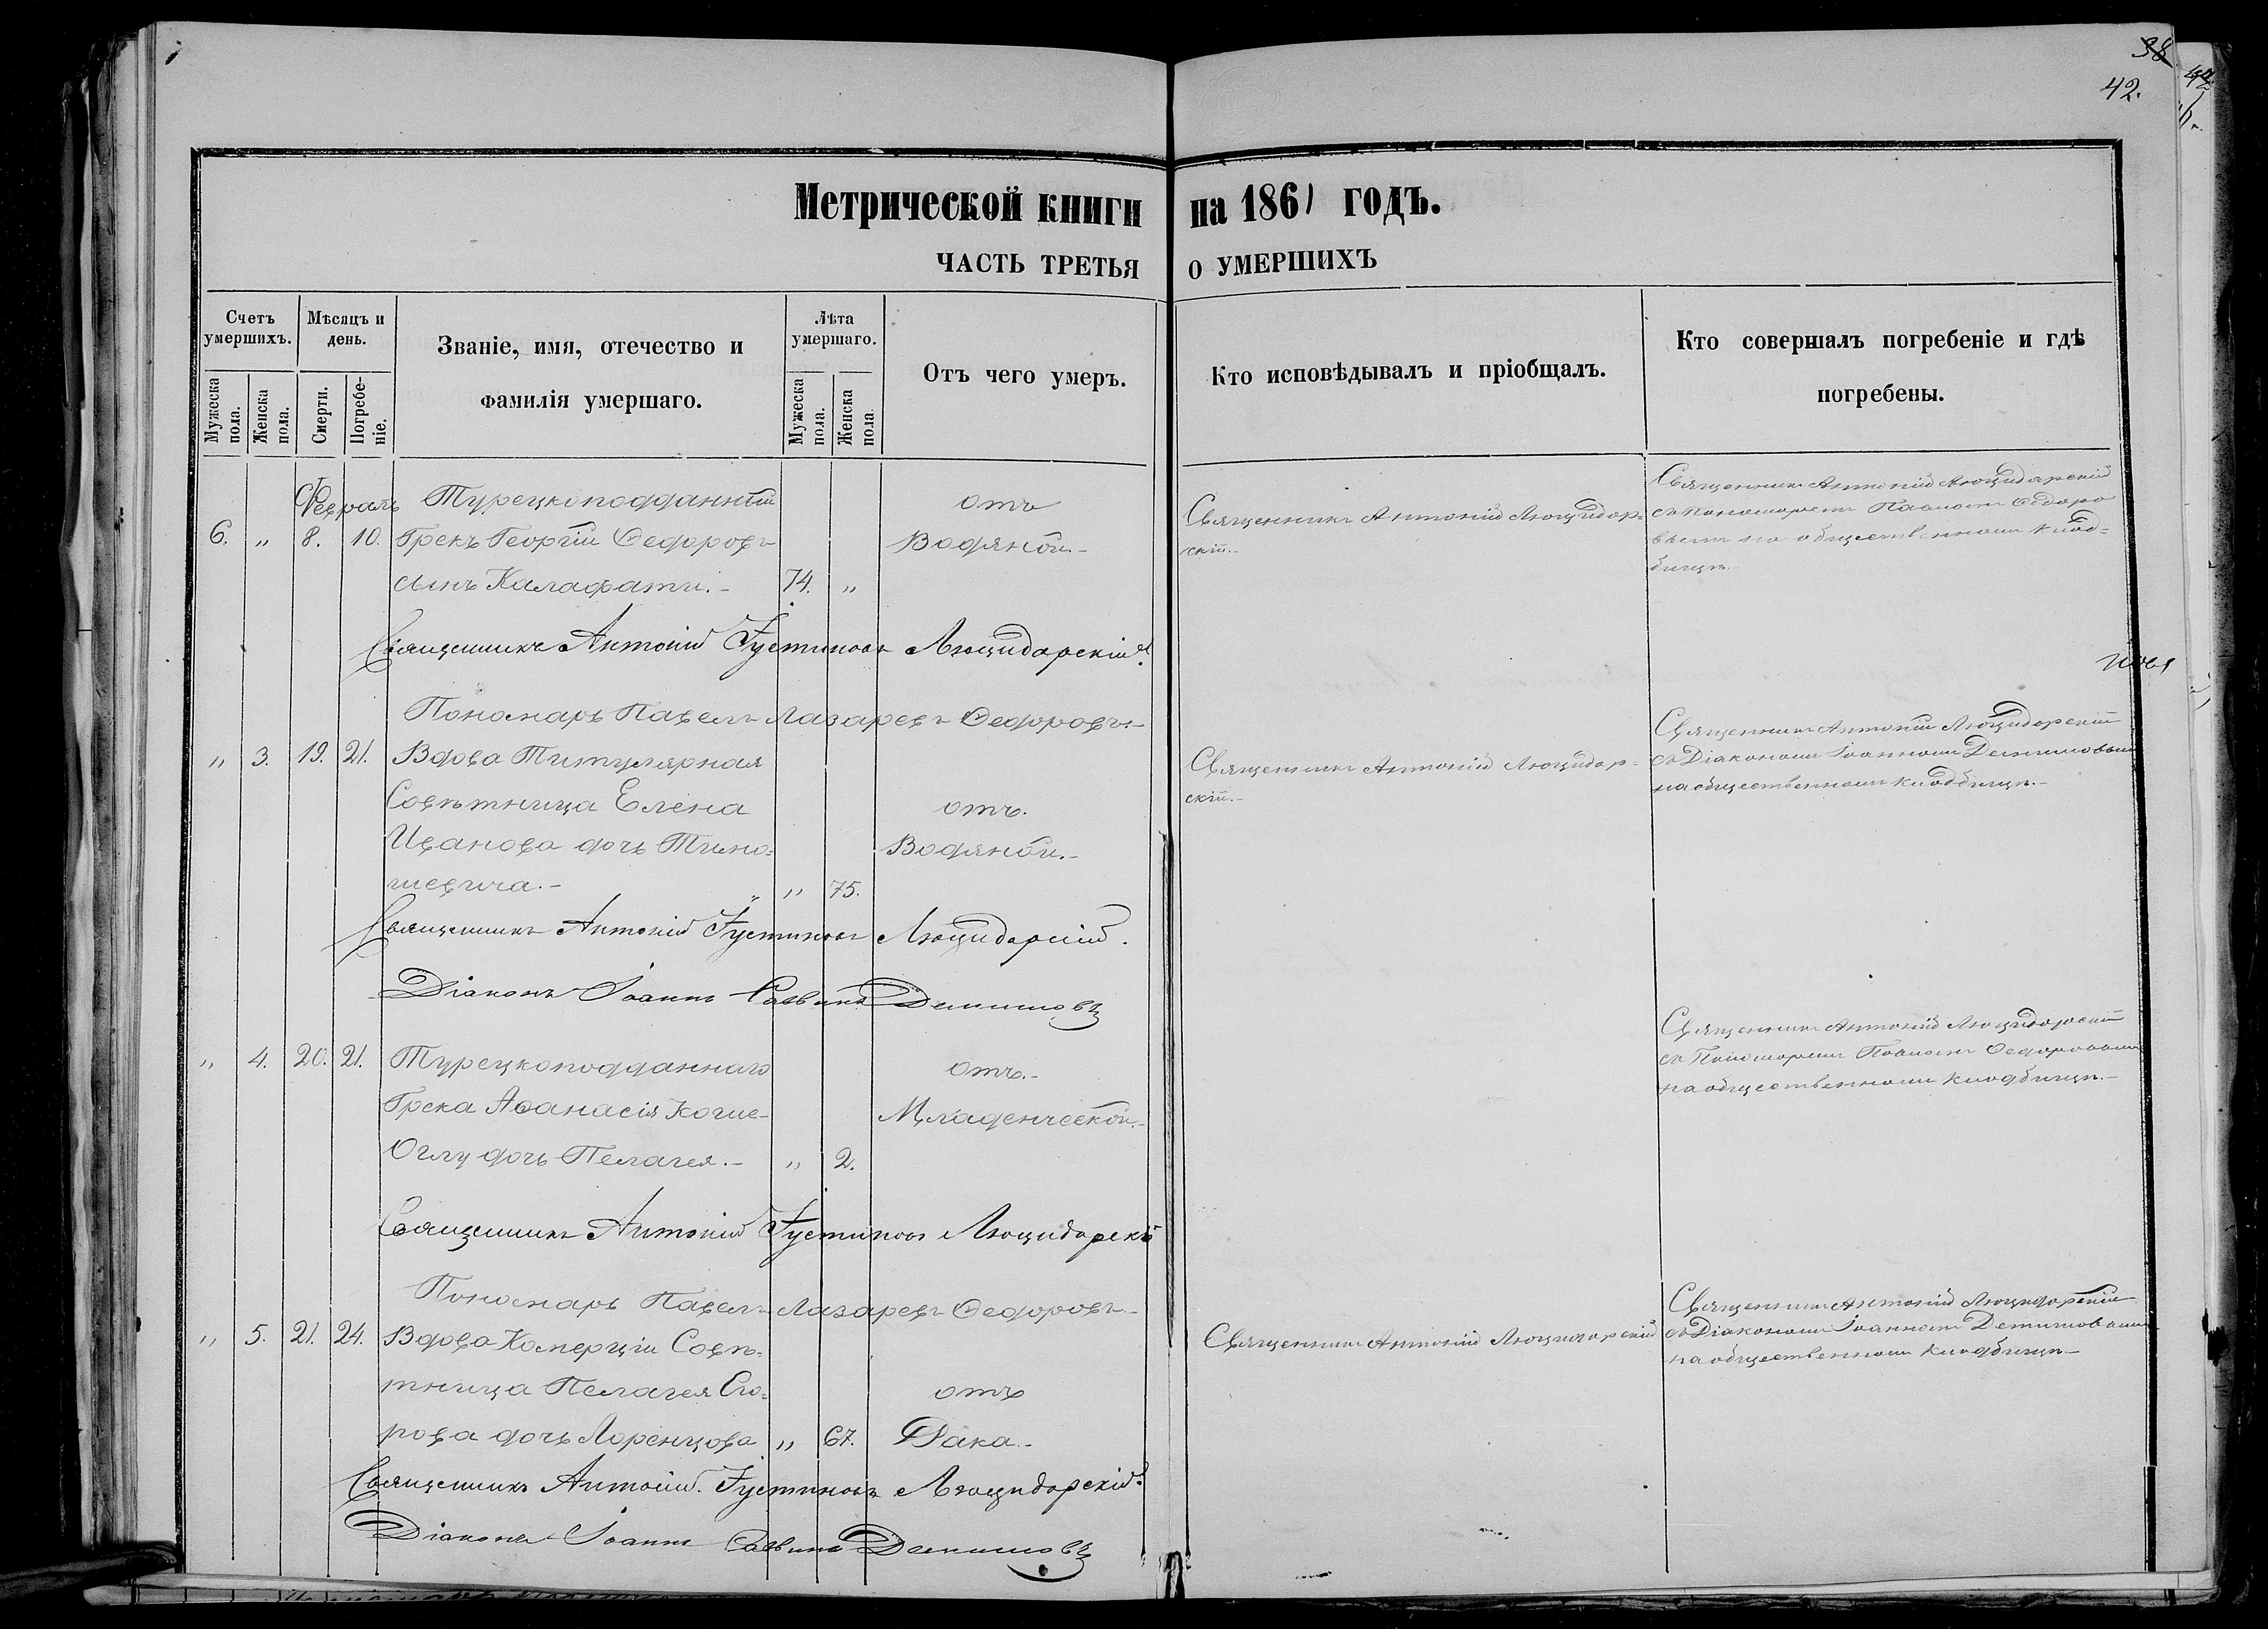 38
42.
Метрической книги на 1861 годъ.
ЧАСТЬ ТРЕТЬЯ О УМЕРШИХЪ
Счетъ умершихъ.
Мужеска пола.
Женска пола.
Мѣсяцъ и день.
Смерти.
Погребеніе.
Званіе, имя, отечество и
фамилія умершаго.
Лѣта умершаго.
Мужеска пола.
Женска пола.
Отъ чего умеръ.
Кто исповѣдывалъ и пріобщалъ.
Кто совершалъ погребеніе и гдѣ
погребены.
Февраль
6. „ 8. 10.
Турецкоподданный
Грекъ Георгій Ѳедоровъ
сынъ Калафати.-
74. „
отъ
Водяной.-
Священникъ Антоній Люцидар-
скій.-
Священникъ Антоній Люцидарскій
съ пономаремъ Павломъ Ѳедоро
вымъ на общественномъ клад-
бищѣ.
Священникъ Антоній Іустиновъ Люцидарскій.
Пономарь Павелъ Лазаревъ Ѳедоровъ.-
„ 3. 19. 21.
Вдова Титулярная
Совѣтница Елена
Иванова дочь Тимо-
шевича.-
„ 75.
отъ.
Водяной.-
Священникъ Антоній Люцидар-
скій.-
Священникъ Антоній Люцидарскій
съ Діакономъ Іоанномъ Демишовымъ
на общественномъ кладбищѣ.-
Священникъ Антоній Іустиновъ Люцидарскій.
Діаконъ Іоаннъ Саввинъ Демишовъ
„ 4. 20. 21.
Турецкоподданнаго
Грека Аѳанасія Когие-
Оглу дочь Пелагея.-
„ 2.
отъ.-
Младенческой.-
Священникъ Антоній Люцидарскій
съ Пономаремъ Павломъ Ѳедоровымъ
на общественномъ кладбищѣ.-
Священникъ Антоній Іустиновъ Люцидарскій
Пономарь Павелъ Лазаревъ Ѳедоровъ.-
„ 5. 21. 24.
Вдова Комерціи Совѣ-
тница Пелагея Его-
рова дочь Лоренцова
„ 67.
отъ
Рака.-
Священникъ Антоній Люцидарскій
Священникъ Антоній Люцидарскій
съ Діакономъ Іоанномъ Демишовымъ
на общественномъ кладбищѣ-
Священникъ Антоній Іустиновъ Люцидарскій.
Діаконъ Іоаннъ Саввинъ Демишовъ